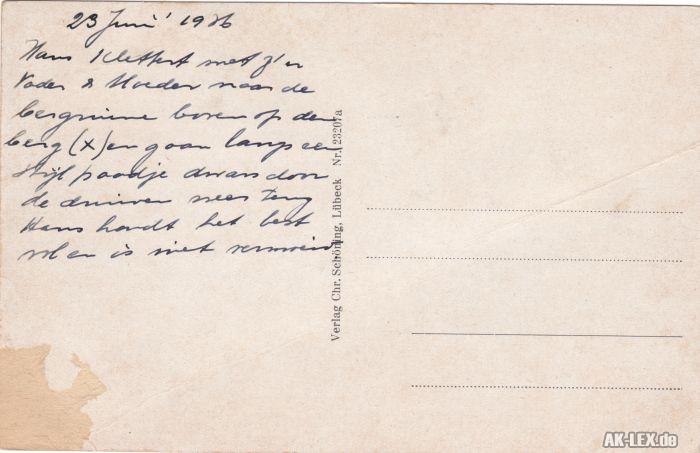 23 Juni 1926
Hans Klettert met z'n
Vader & Moeder naar de
bergruine boven op den
berg (x) en gaan langs een
stijl paadje dwars door
de druiven weer terug
Hans houdt het best
vol en is niet vermoeid
Verlag Chr. Schöning, Lübeck Nr. 23207a
AK-LEX.de